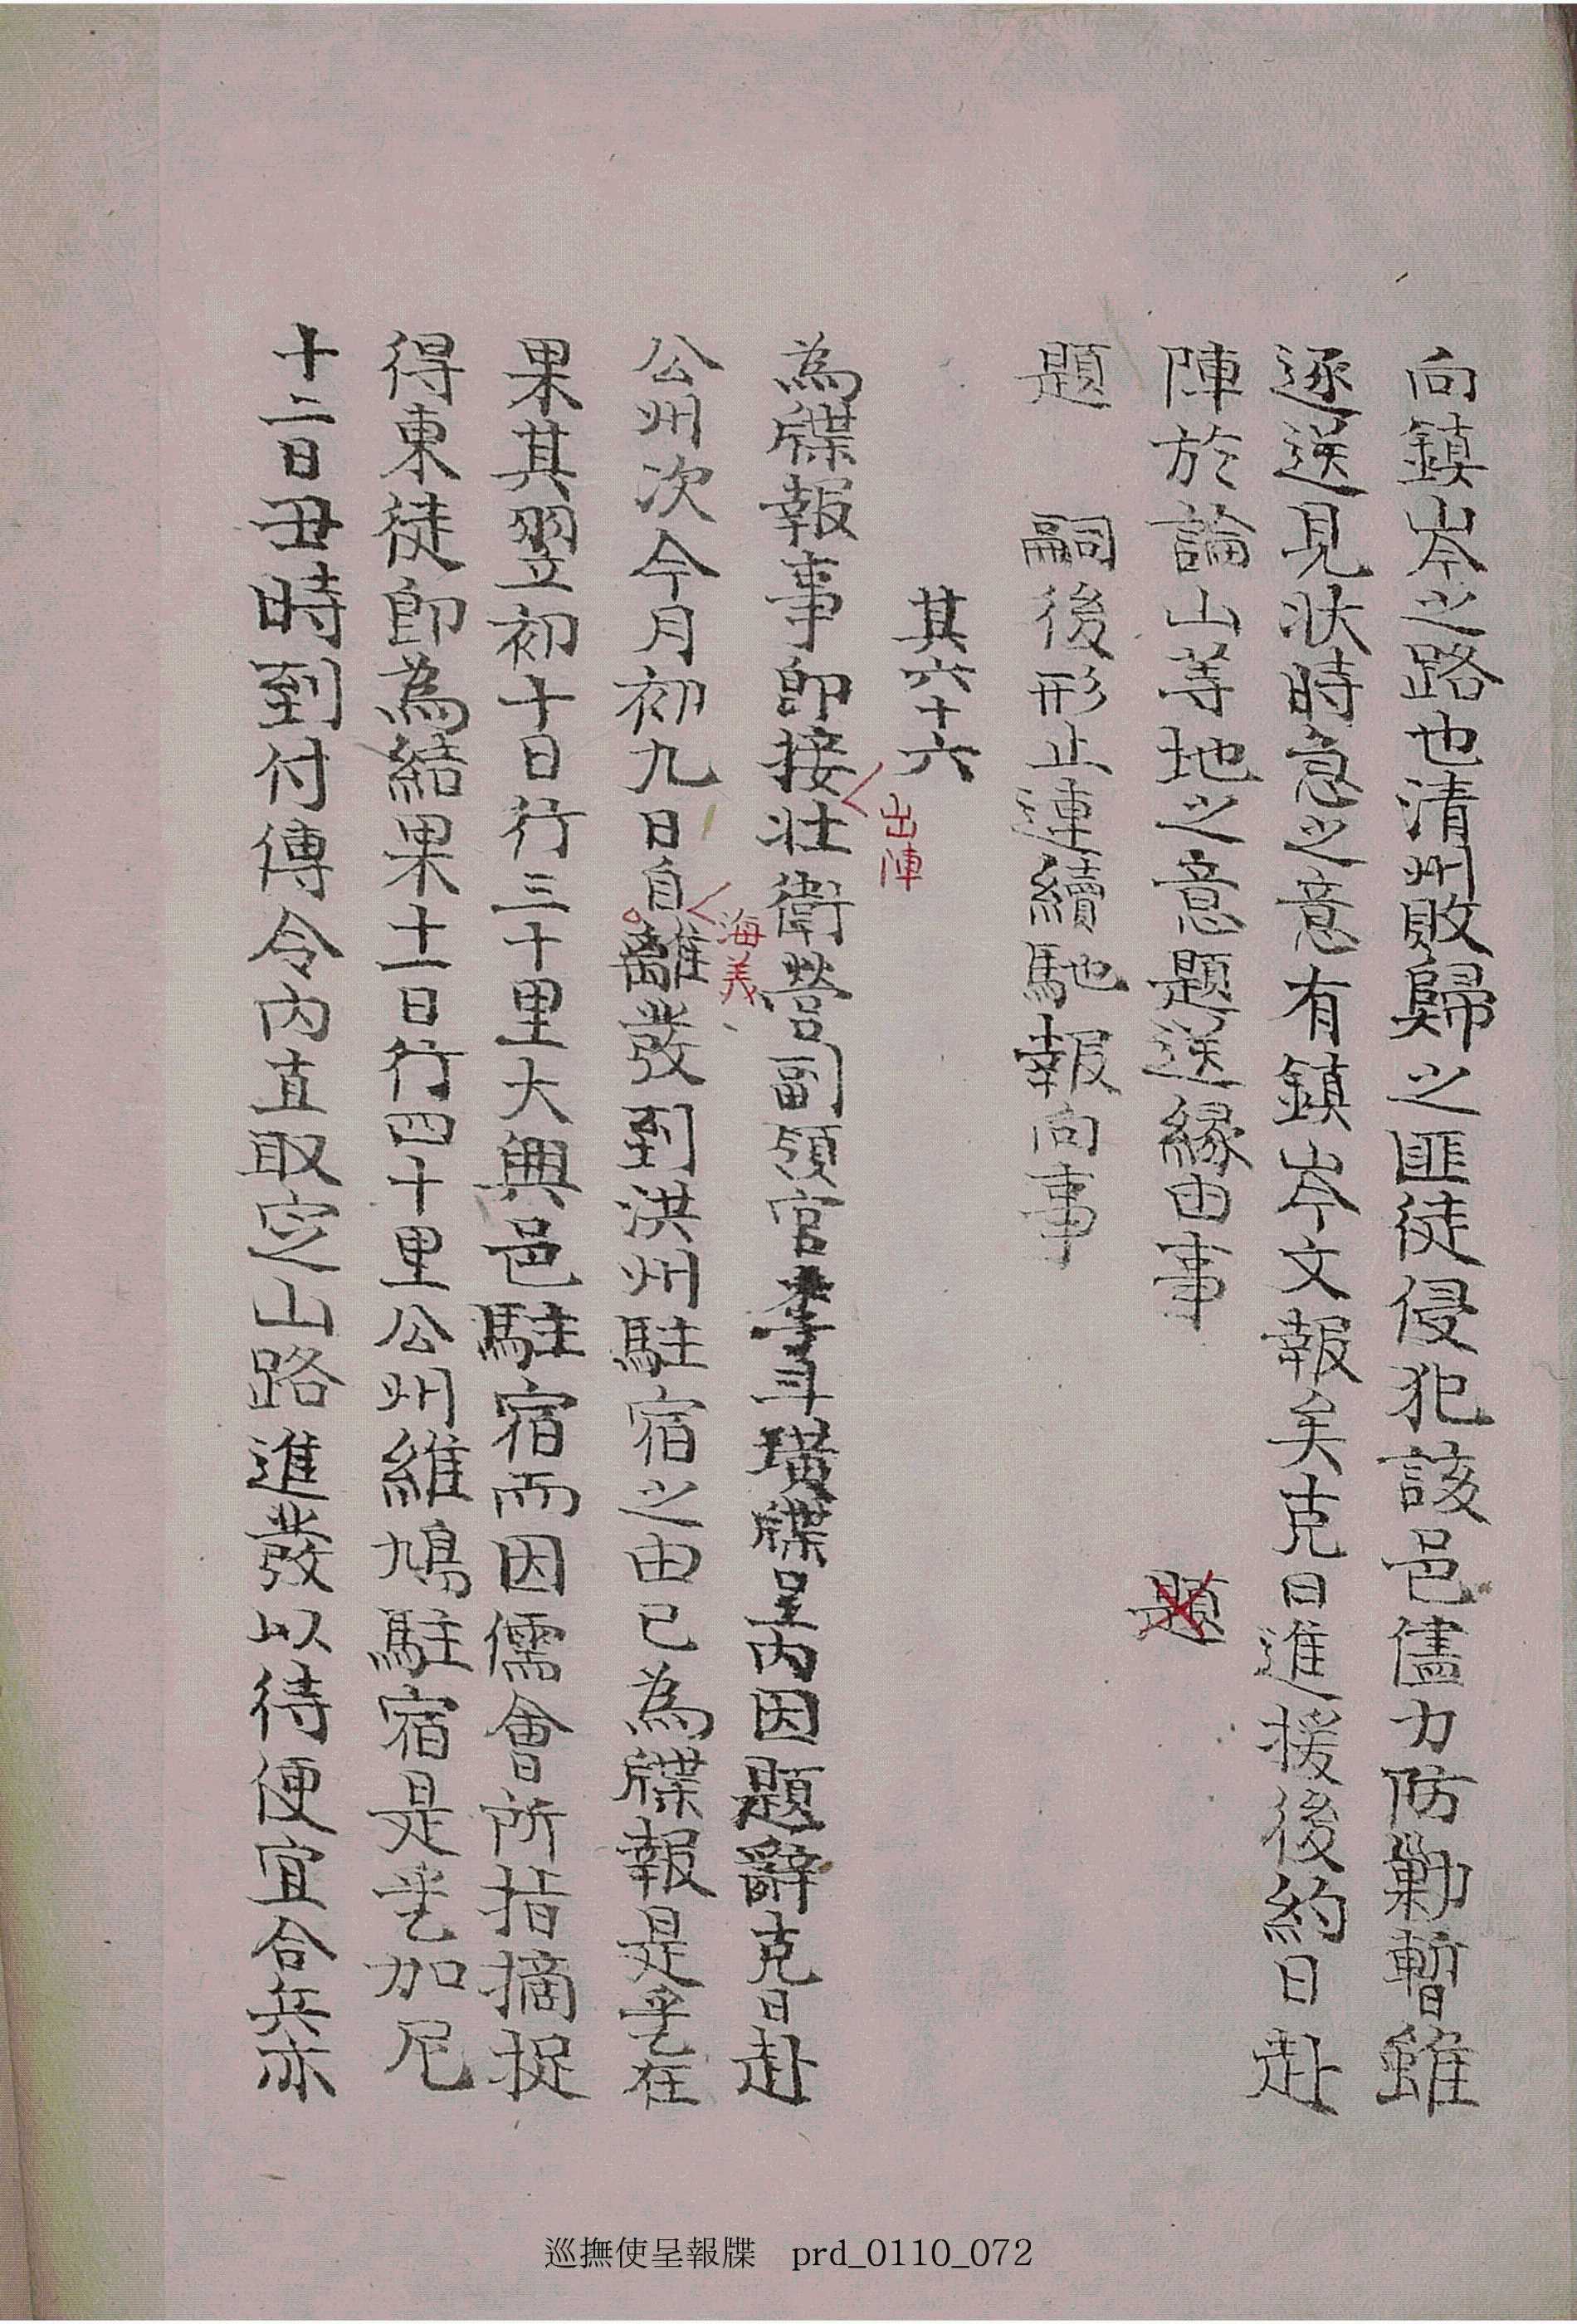 向鎮岑之路也清州敗歸之匪徒侵犯該邑儘力防勦暫雖
逐送見状時急之意有鎮岑文報矣克日進援後約日赴
陣於論山等地之意題送縁由事
題
題　嗣後形止連續馳報向事
其六十六
為牒報事即接壮衛營副領官李斗璜牒呈內因題辭克日赴
出陣
公州次今月初九日自離發到洪州駐宿之由已為牒報是乎在
海美
果其翌初十日行三十里大興邑駐宿而因儒會所指摘捉
得東徒即為結果十一日行四十里公州維鳩駐宿是乎乭加尼
十二日丑時到付傳令內直取定山路進發以待便宜合兵亦
巡撫使呈報牒 prd_0110_072